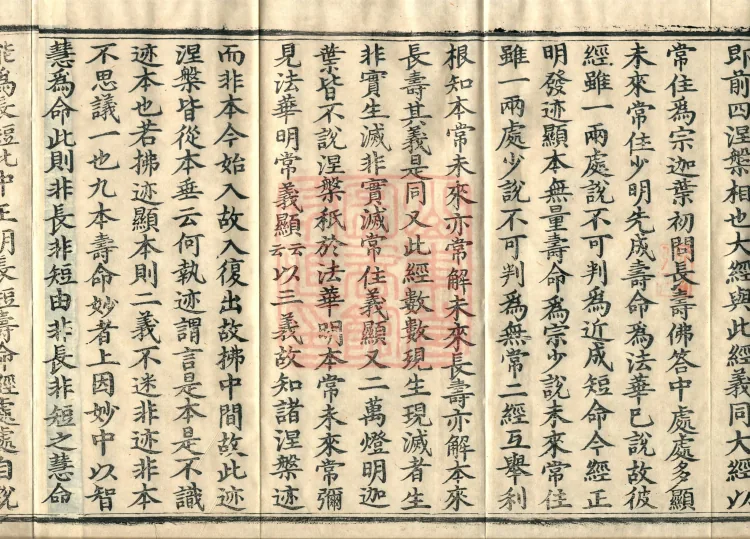 即前四涅槃相也大經與此經義同大經以
常住爲宗迦葉初問長壽佛答中處處多顯
未來常住少明先成壽命爲法華已說故彼
經雖一兩處說不可判爲近成短命今經正
明發迹顯本無量壽命爲宗少說未來常住
雖一兩處少說不可判爲無常二經互舉利
根知本常未來亦常解未來長壽亦解本來
長壽其義是同又此經數數現生現滅者生
非實生滅非實滅常住義顯又二萬燈明迦
葉皆不說涅槃秖於法華明本常未來常彌
見法華明常義顯云云以三義故知諸涅槃迹
而非本今始入故入復出故拂中間故此迹
涅槃皆從本垂云何執迹謂言是本是不識
迹本也若拂迹顯本則二義不迷非迹非本
不思議一也九本壽命妙者上因妙中以智
慧爲命此則非長非短由非長非短之慧命
能爲長短此中正明長短壽命經處處自說